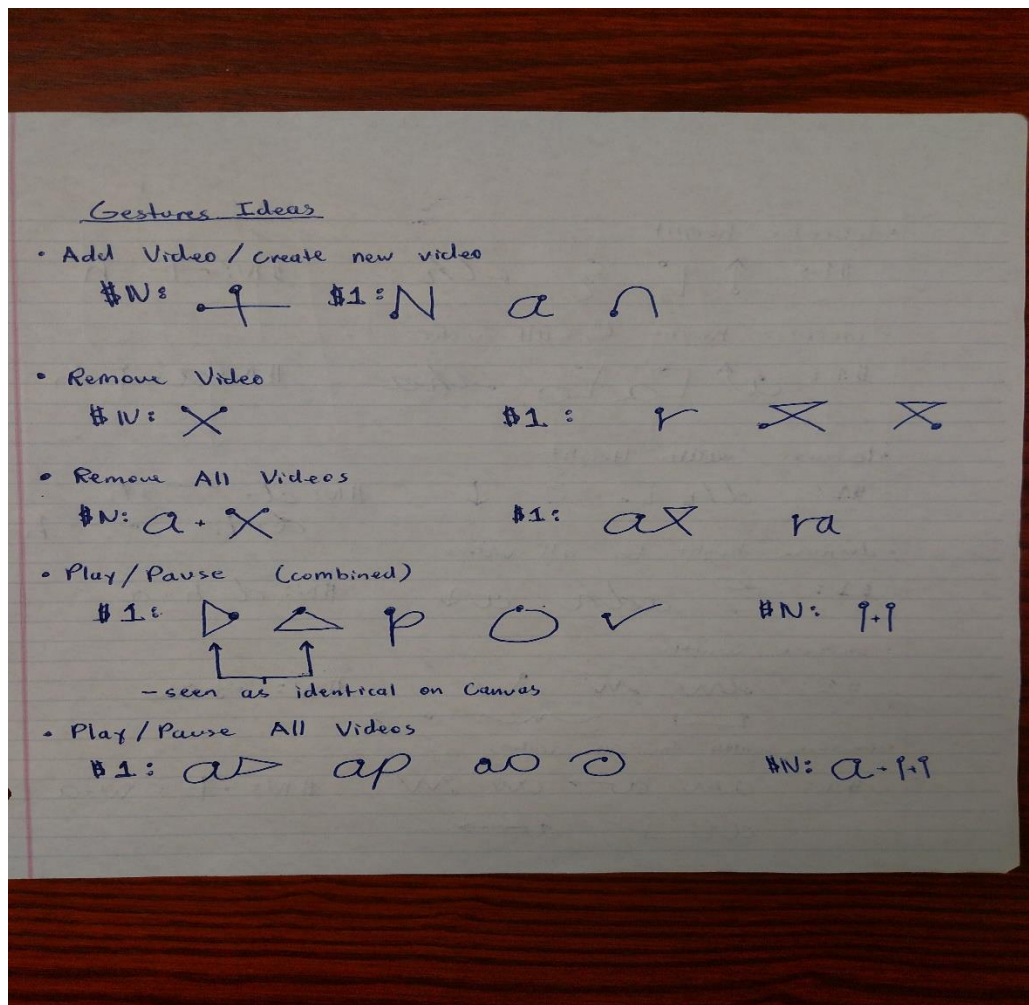 Gestures Ideas
• Add Video / Create new video
$N: $1: N a
• Remove Video
$N: $1: r
• Remove All Videos
$N: a + $1: a ra
• Play/Pause (combined)
$1: p $N: +
- seen as identical on Canvas
• Play/Pause All Videos
$1: a ap ao $N: a + +